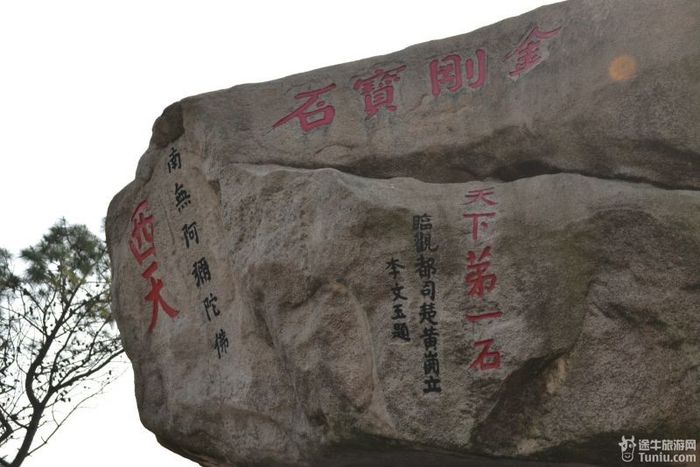 金剛寶石
天下第一石
臨觀都司楚黄崗立
李文玉題
南無阿彌陀佛
西天
途牛旅游网
Tuniu.com